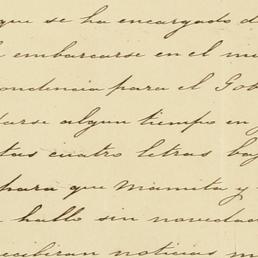 que se ha encargado d
embarcarse en el mi
ondencia para el Gob
darse algun tiempo en
tas cuatro letras baj
para que Mamita y
hallo sin novedad
recibiran noticias m